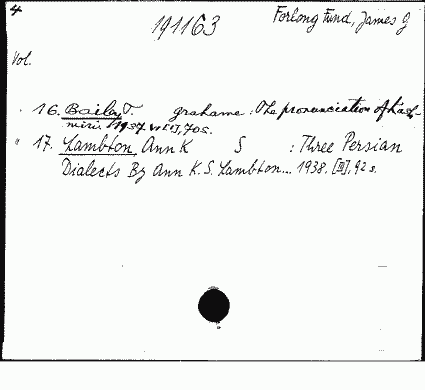 4
191163
Forlong Fund, James G
Vol.
16. Bailey, T. grahame : The pronunciation of Kash-
miri. 1937. VI[I], 70 s.
" 17. Lambton, Ann K S : Three Persian
Dialects By Ann K. S. Lambton... 1938. [III], 92 s.